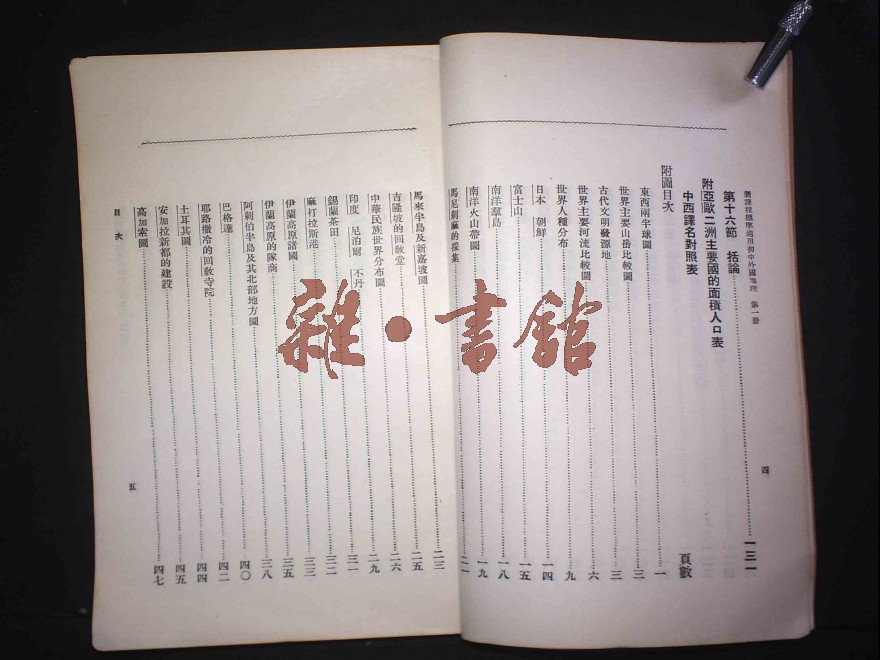 新課程標準適用初中外國地理 第一册
四
第十六節 括論……一三一
附亞歐二洲主要國的面積人口表
中西譯名對照表
附圖目次 頁數
東西兩半球圖……一
世界主要山岳比較圖……三
古代文明發源地……三
世界主要河流比較圖……六
世界人種分布……九
日本 朝鮮……一四
富士山……一五
南洋羣島……一八
南洋火山帶圖……一九
馬尼剌麻的採集……二一
馬來半島及新嘉坡圖……二三
吉隆坡的回敎堂……二五
中華民族世界分布圖……二六
印度 尼泊爾 不丹……二九
錫蘭茶田……三一
麻打拉斯港……三二
伊蘭高原諸國……三三
伊蘭高原的隊商……三五
阿剌伯半島及其北部地方圖……三八
巴格達……四〇
耶路撒冷的回敎寺院……四二
土耳其圖……四四
安加拉新都的建設……四五
高加索圖……四七
目次
五
雜·書館